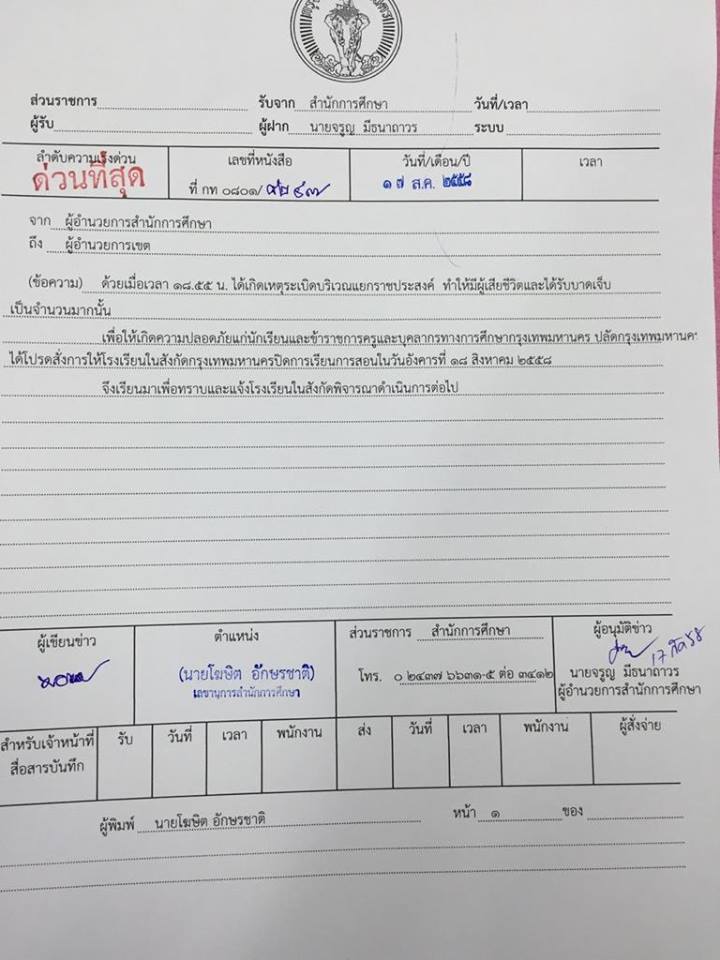 ส่วนราชการ รับจาก สำนักการศึกษา วันที่/เวลา
ผู้รับ ผู้ฝาก นายจรูญ มีธนาถาวร ระบบ
ลำดับความเร่งด่วน เลขที่หนังสือ วันที่/เดือน/ปี เวลา
ด่วนที่สุด ที่ กท ๐๘๐๑/ ๑๗ ส.ค. ๒๕๕๘
จาก ผู้อำนวยการสำนักการศึกษา
ถึง ผู้อำนวยการเขต
(ข้อความ) ด้วยเมื่อเวลา ๑๘.๕๕ น. ได้เกิดเหตุระเบิดบริเวณแยกราชประสงค์ ทำให้มีผู้เสียชีวิตและได้รับบาดเจ็บ
เป็นจำนวนมากนั้น
เพื่อให้เกิดความปลอดภัยแก่นักเรียนและข้าราชการครูและบุคลากรทางการศึกษากรุงเทพมหานคร ปลัดกรุงเทพมหานคร
ได้โปรดสั่งการให้โรงเรียนในสังกัดกรุงเทพมหานครปิดการเรียนการสอนในวันอังคารที่ ๑๘ สิงหาคม ๒๕๕๘
จึงเรียนมาเพื่อทราบและแจ้งโรงเรียนในสังกัดพิจารณาดำเนินการต่อไป
ผู้เขียนข่าว ตำแหน่ง ส่วนราชการ สำนักการศึกษา ผู้อนุมัติข่าว
๑๗ ส.ค. ๕๘
(นายโฆษิต อักษรชาติ) โทร. ๐ ๒๔๓๗ ๖๖๓๑-๕ ต่อ ๓๔๑๒ นายจรูญ มีธนาถาวร
เลขานุการสำนักการศึกษา ผู้อำนวยการสำนักการศึกษา
สำหรับเจ้าหน้าที่ รับ วันที่ เวลา พนักงาน ส่ง วันที่ เวลา พนักงาน ผู้สั่งจ่าย
สื่อสารบันทึก
ผู้พิมพ์ นายโฆษิต อักษรชาติ หน้า ๑ ของ